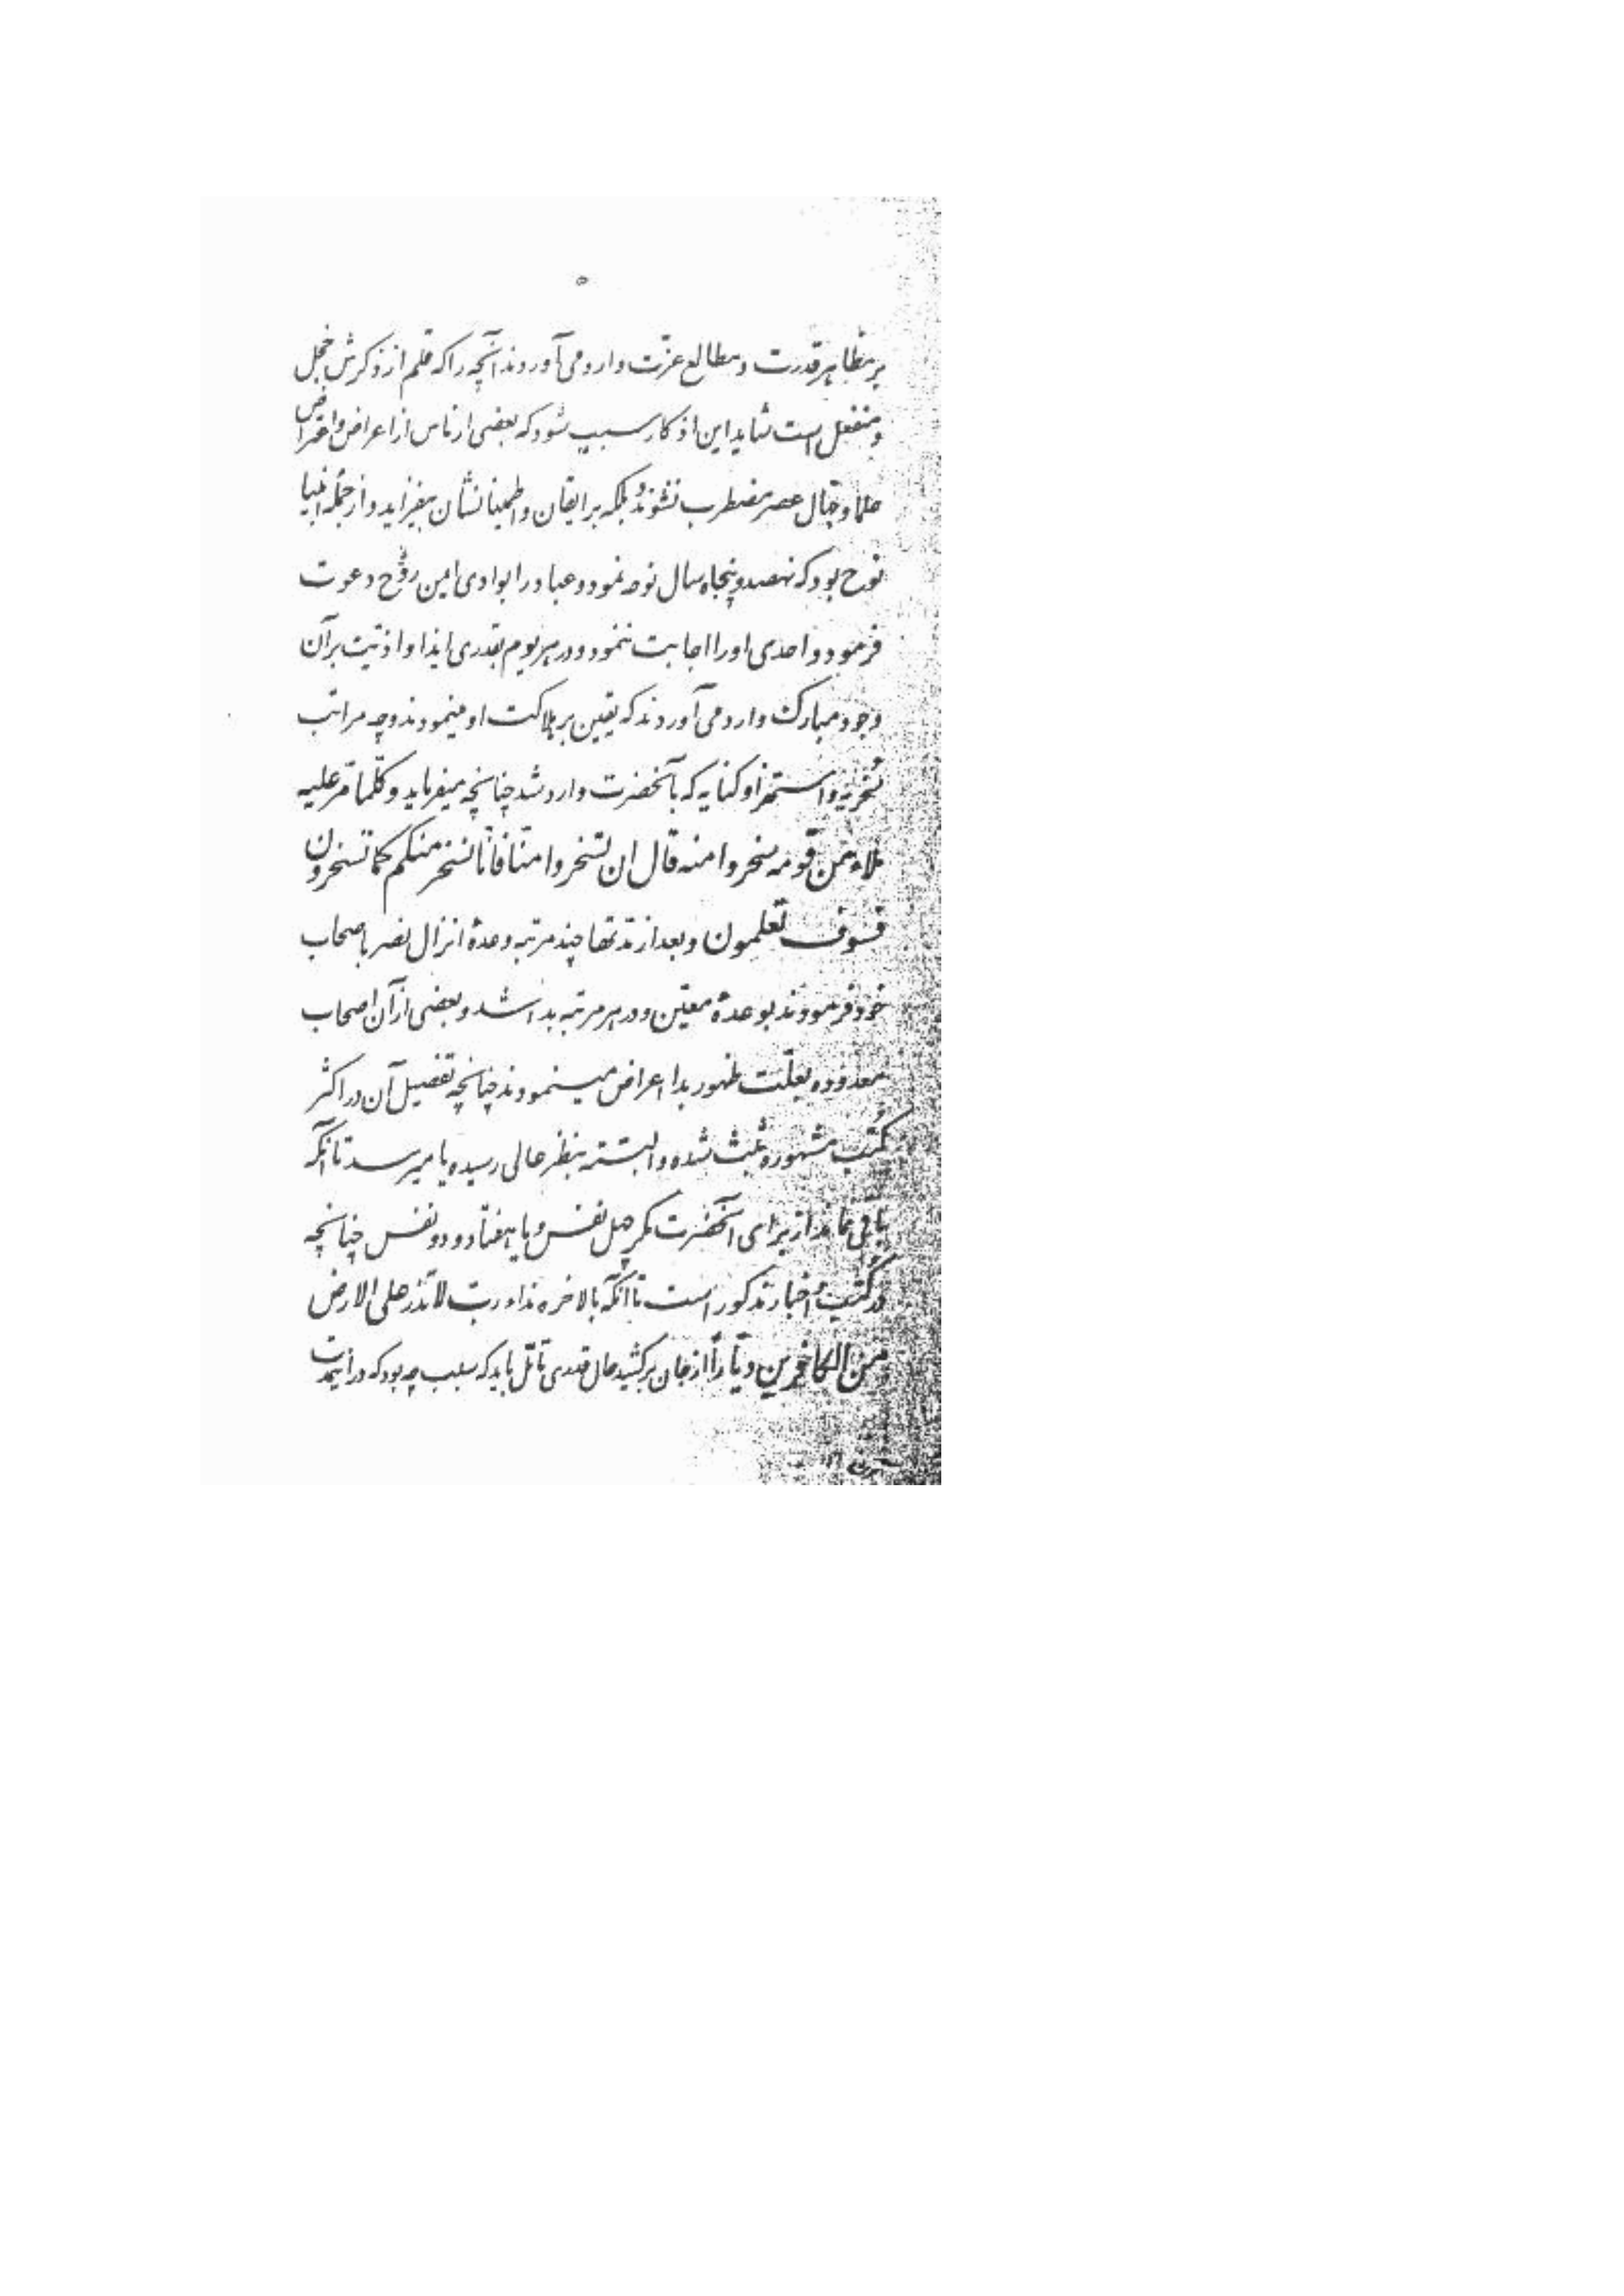 ۵
بر مظاهر قدرت و مطالع عزّت وارد می‌آوردند آنچه را که قلم از ذکرش خجل
و منفعل است شاید این اذکار سبب شود که بعضی از ناس از اعراض و اعتراض
علما و جهّال عصر مضطرب نشوند و بلکه بر ایقان و اطمینانشان بیفزاید و از جمله انبیا
نوح بود که نهصد و پنجاه سال نوحه نمود و عباد را بوادی ایمن روح دعوت
فرمود و احدی او را اجابت ننمود و در هر یوم بقدری ایذا و اذیّت بر آن
وجود مبارک وارد می‌آوردند که یقین بر هلاکت او مینمودند و چه مراتب
سُخریّه و استهزا و کنایه که بآنحضرت وارد شد چنانچه میفرماید و کلّما مرّ علیه
ملاء من قومه سخروا منه قال ان تسخروا منّا فانّا نسخر منکم کما تسخرون
فسوف تعلمون و بعد از مدّتها چند مرتبه وعدهٔ انزال نصر باصحاب
خود فرمودند بوعدهٔ معیّن و در هر مرتبه بدا شد و بعضی از آن اصحاب
معدوده بعلّت ظهور بدا اعراض مینمودند چنانچه تفصیل آن در اکثر
کُتب مشهوره ثبت شده و البتّه بنظر عالی رسیده یا میرسد تا آنکه
باقی نماند از برای آنحضرت مگر چهل نفس و یا هفتاد و دو نفس چنانچه
در کُتب و اخبار مذکور است تا آنکه بالاخره نداء ربّ لا تذر علی الارض
من الکافرین دیّاراً از جان برکشید حال قدری تأمّل باید که سبب چه بود که در آنمدّت